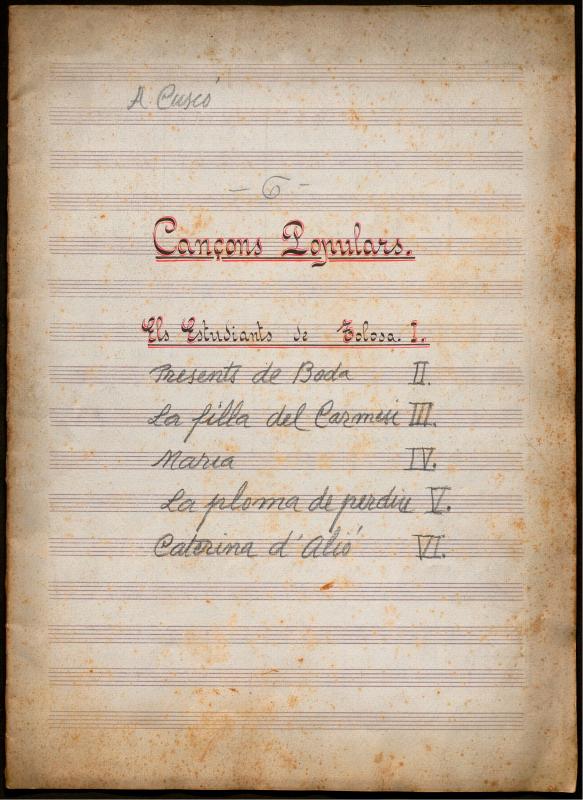 A. Cuscó
- 6 -
Cançons Populars.
Els Estudiants de Tolosa. I.
Presents de Boda II.
La filla del Carmesí III.
Maria IV.
La ploma de perdiu V.
Caterina d'Alió VI.